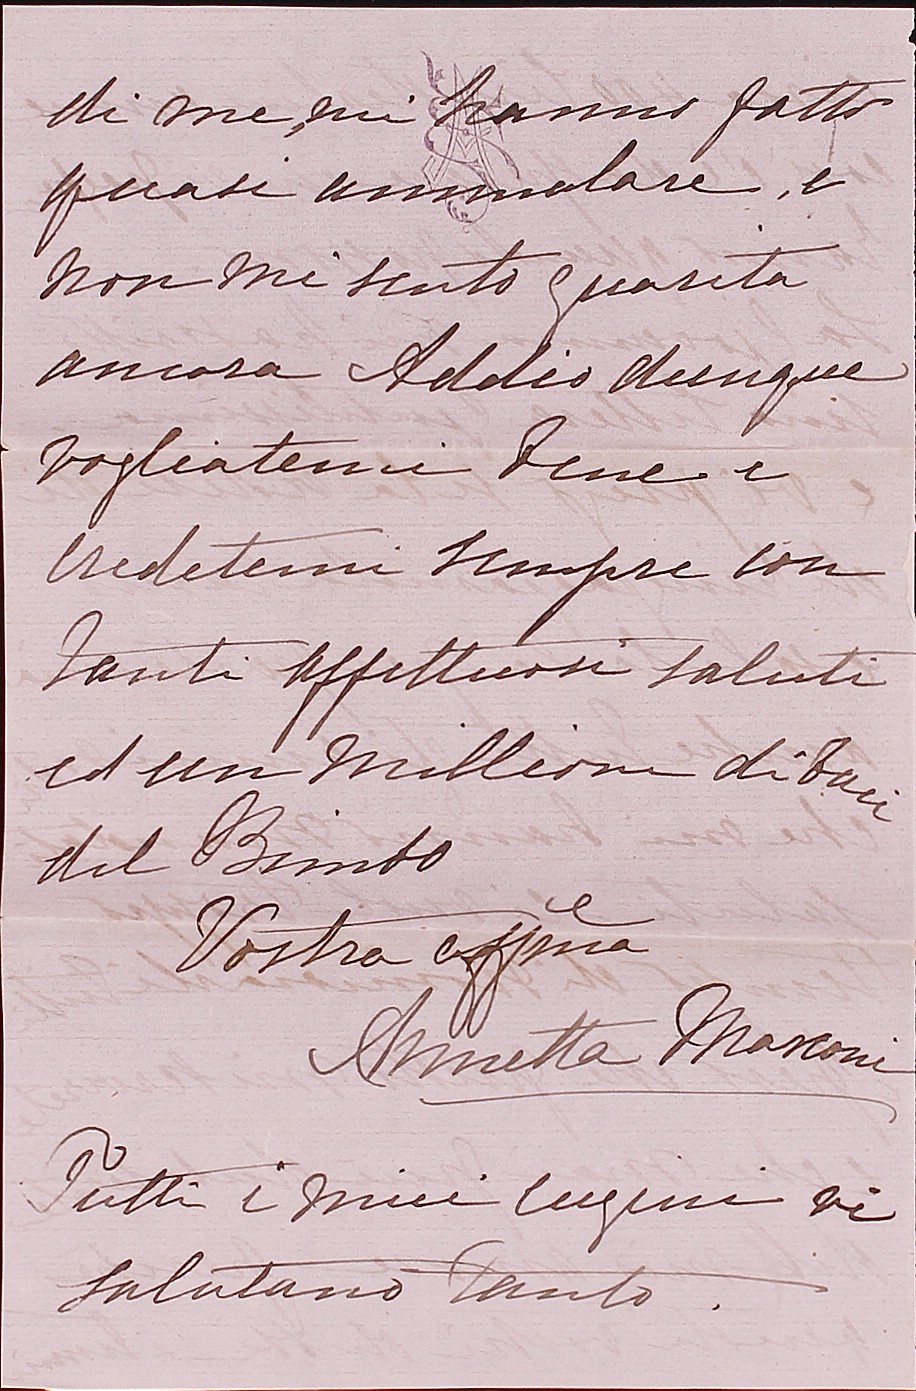 di me, mi hanno fatto
quasi ammalare, e
non mi sento guarita
ancora Addio dunque
vogliatemi bene e
credetemi sempre con
tanti affettuosi saluti
ed un millione di baci
del Bimbo
Vostra affma
Annetta Marconi
Tutti i miei cugini vi
salutano tanto.